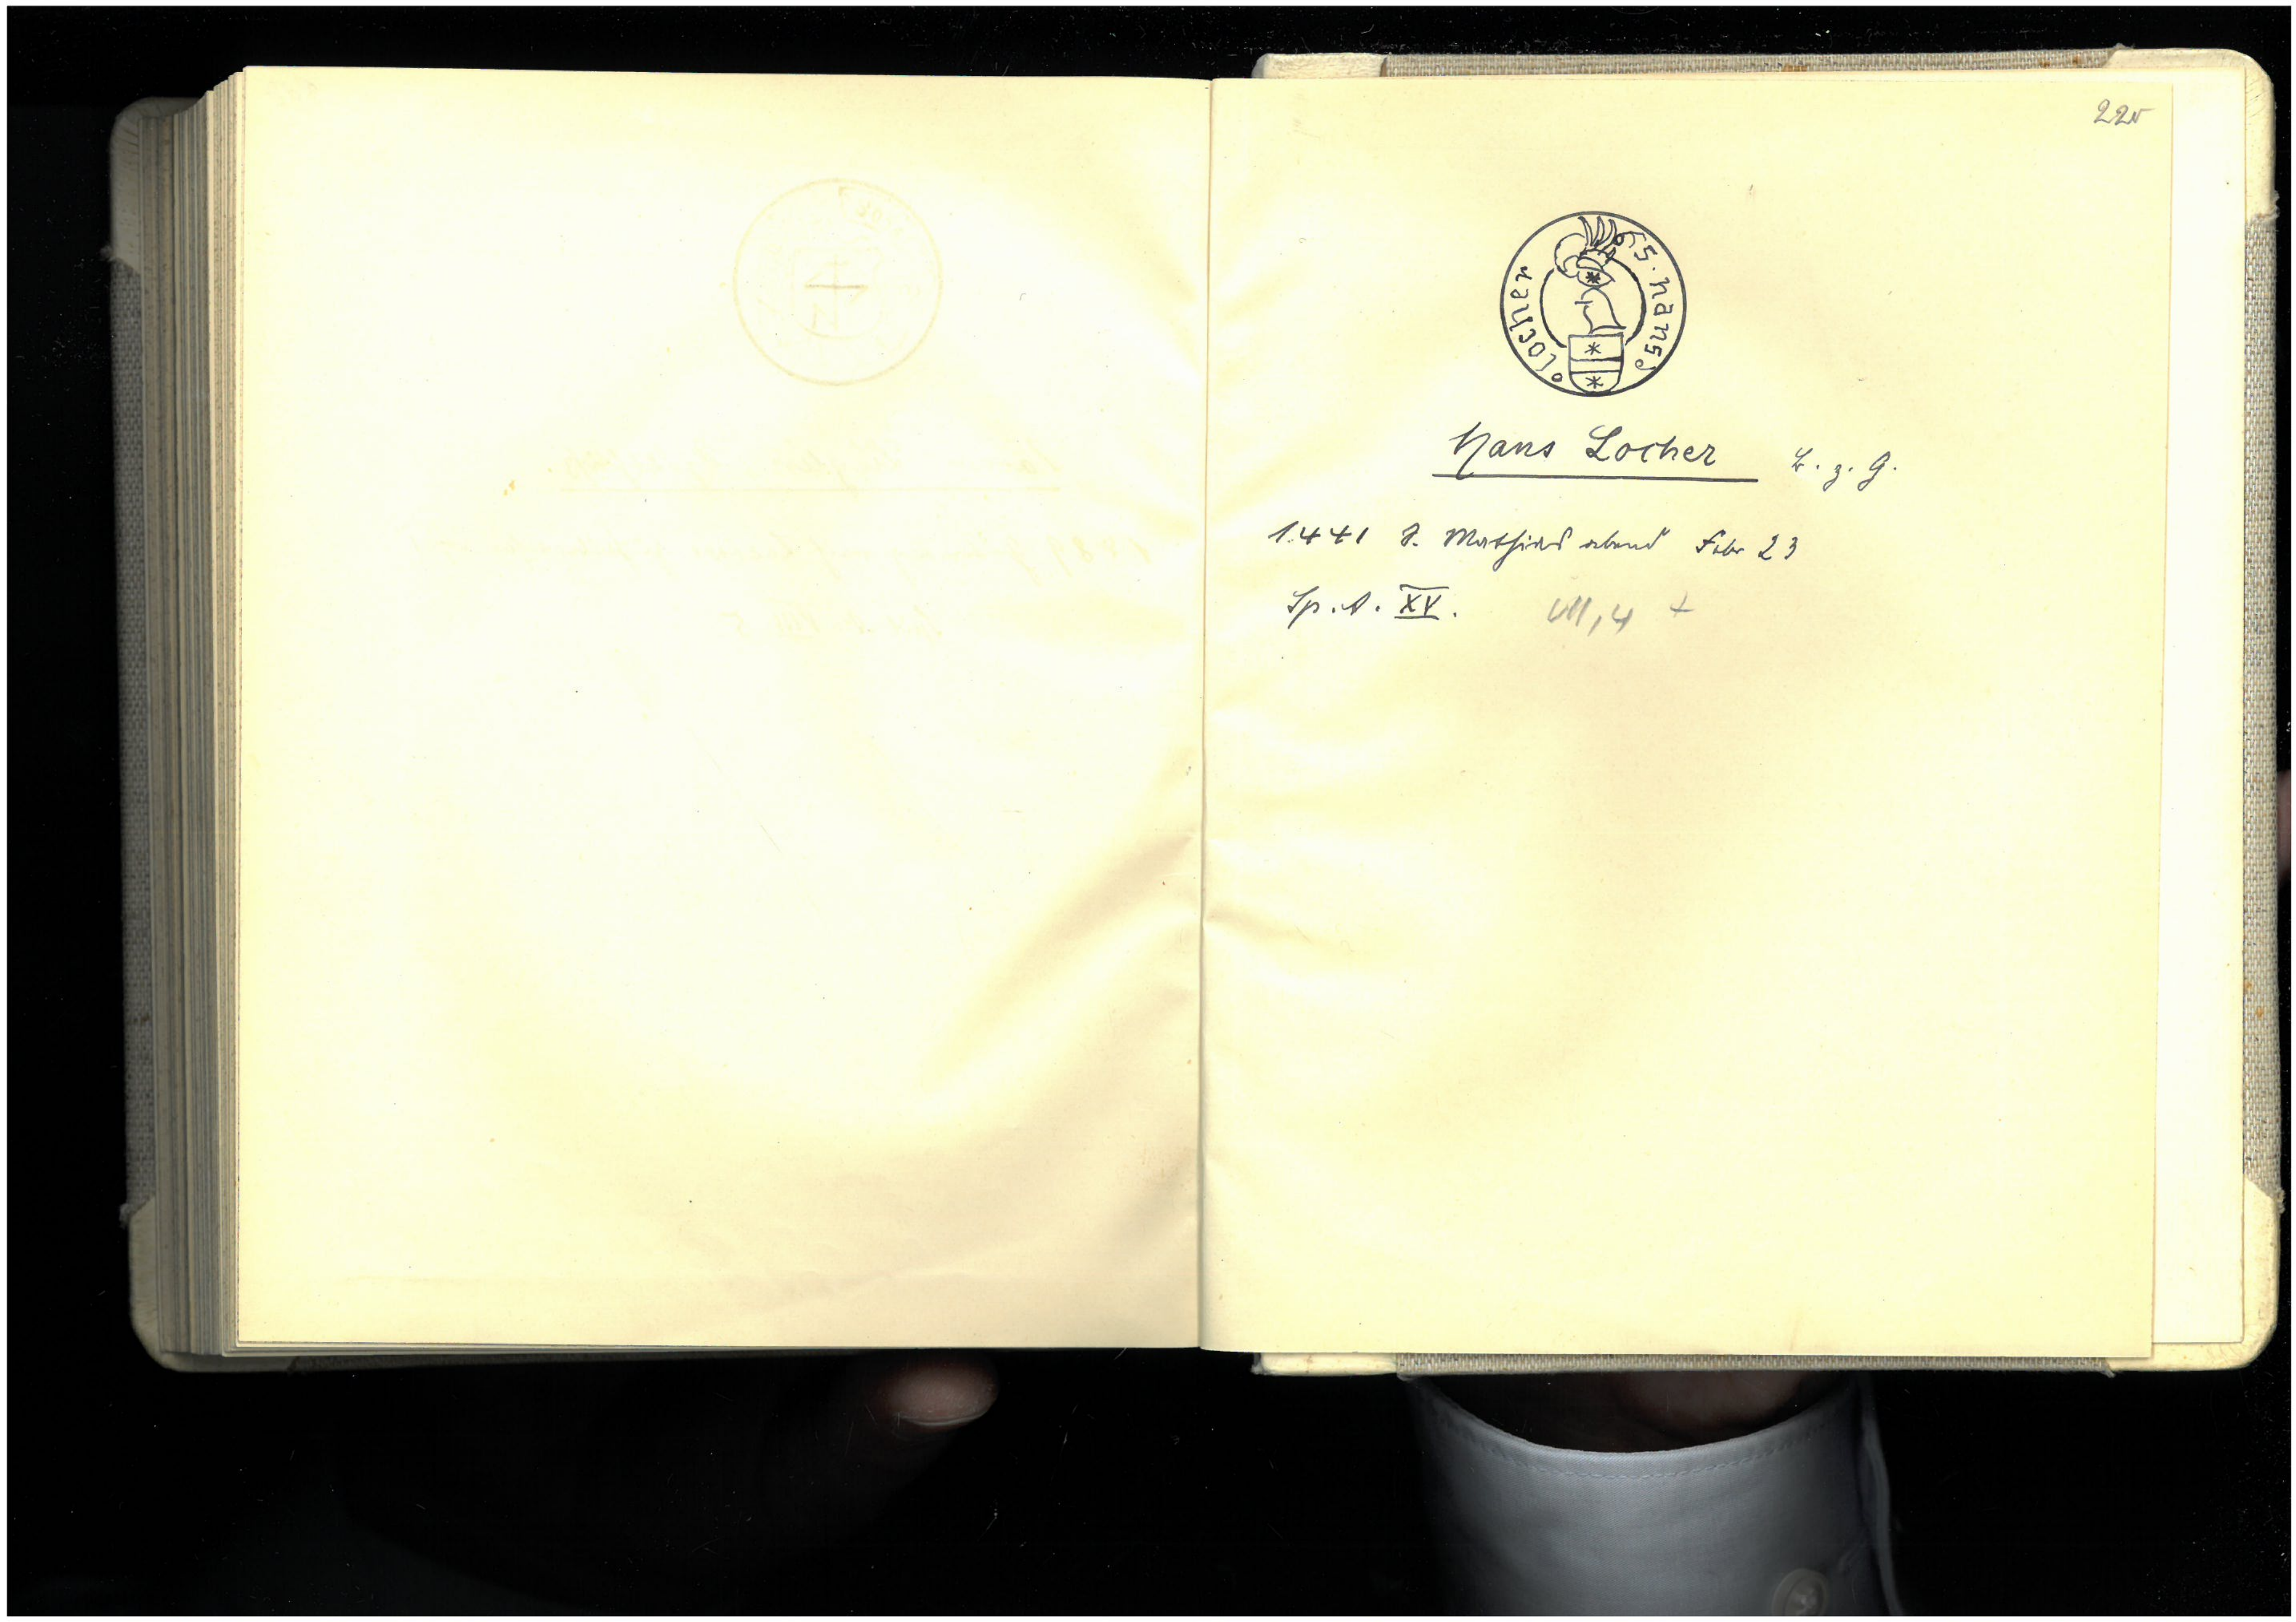 S. hans
locher
Hans Locher B. z. G.
1441 S. Mathias abend Febr 23
Sp. A. XV. VII, 4 +